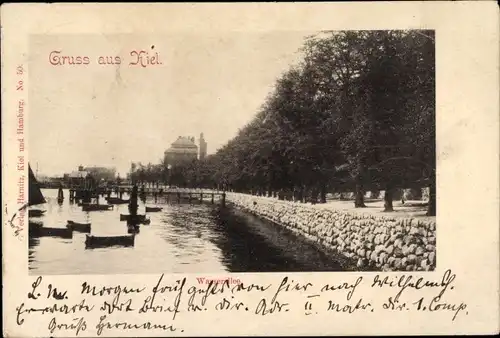 Gruss aus Kiel.
Verlag Harnitz, Kiel und Hamburg. No 50.
Wasserallee.
L. M. Morgen früh gehts von hier nach Wilhelmsh.
Erwarte dort Brief v. dir. Adr. II Matr. Div. 1. Comp.
Gruß Hermann.